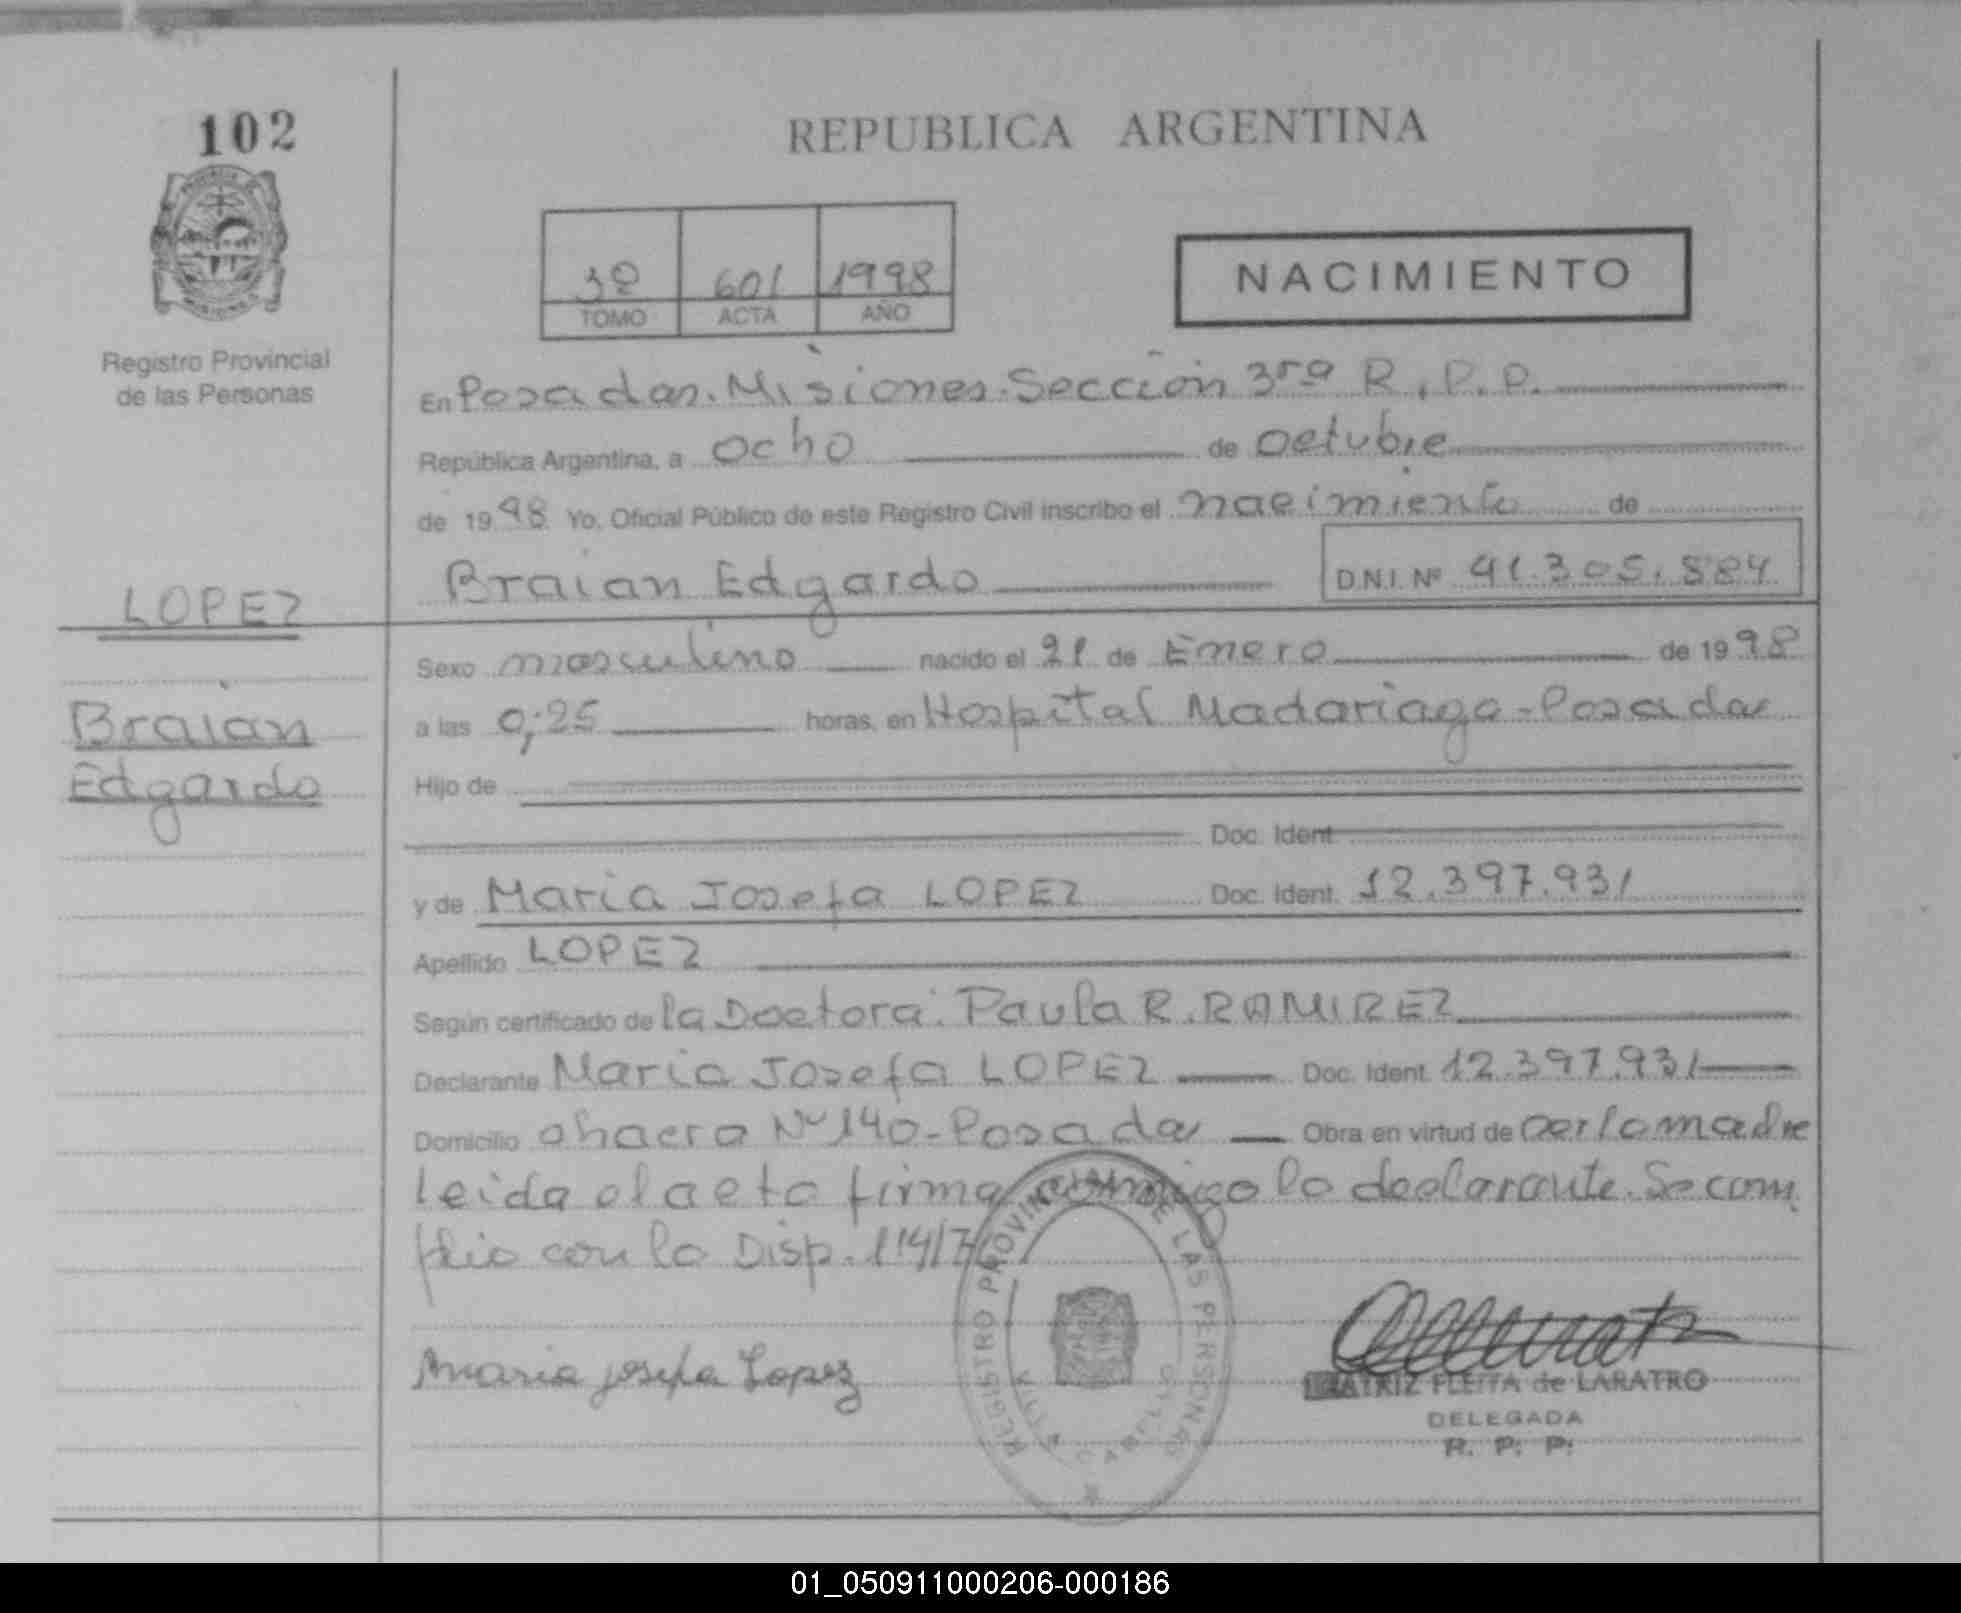 102
REPUBLICA ARGENTINA
3º 601 1998
TOMO ACTA AÑO
NACIMIENTO
Registro Provincial
de las Personas
En Posadas. Misiones. Sección 3ra R. P. P.
República Argentina, a ocho de octubre
de 1998 Yo, Oficial Público de este Registro Civil inscribo el nacimiento de
Braian Edgardo D.N.I. Nº 41.305.884
LOPEZ
Braian
Edgardo
Sexo masculino nacido el 21 de Enero de 1998
a las 0;25 horas, en Hospital Madariaga-Posadas
Hijo de
Doc. Ident.
y de Maria Josefa LOPEZ Doc. Ident. 12.397.931
Apellido LOPEZ
Según certificado de la Doctora: Paula R. RAMIREZ
Declarante Maria Josefa LOPEZ Doc. Ident. 12.397.931
Domicilio chacra Nº 140-Posadas Obra en virtud de ser la madre
Leida el acta firma conmigo la declarante. Se cum
plio con la Disp. 114/7
REGISTRO PROVINCIAL DE LAS PERSONAS
Maria josefa Lopez
BEATRIZ FLEITA de LARATRO
DELEGADA
R. P. P.
01_050911000206-000186